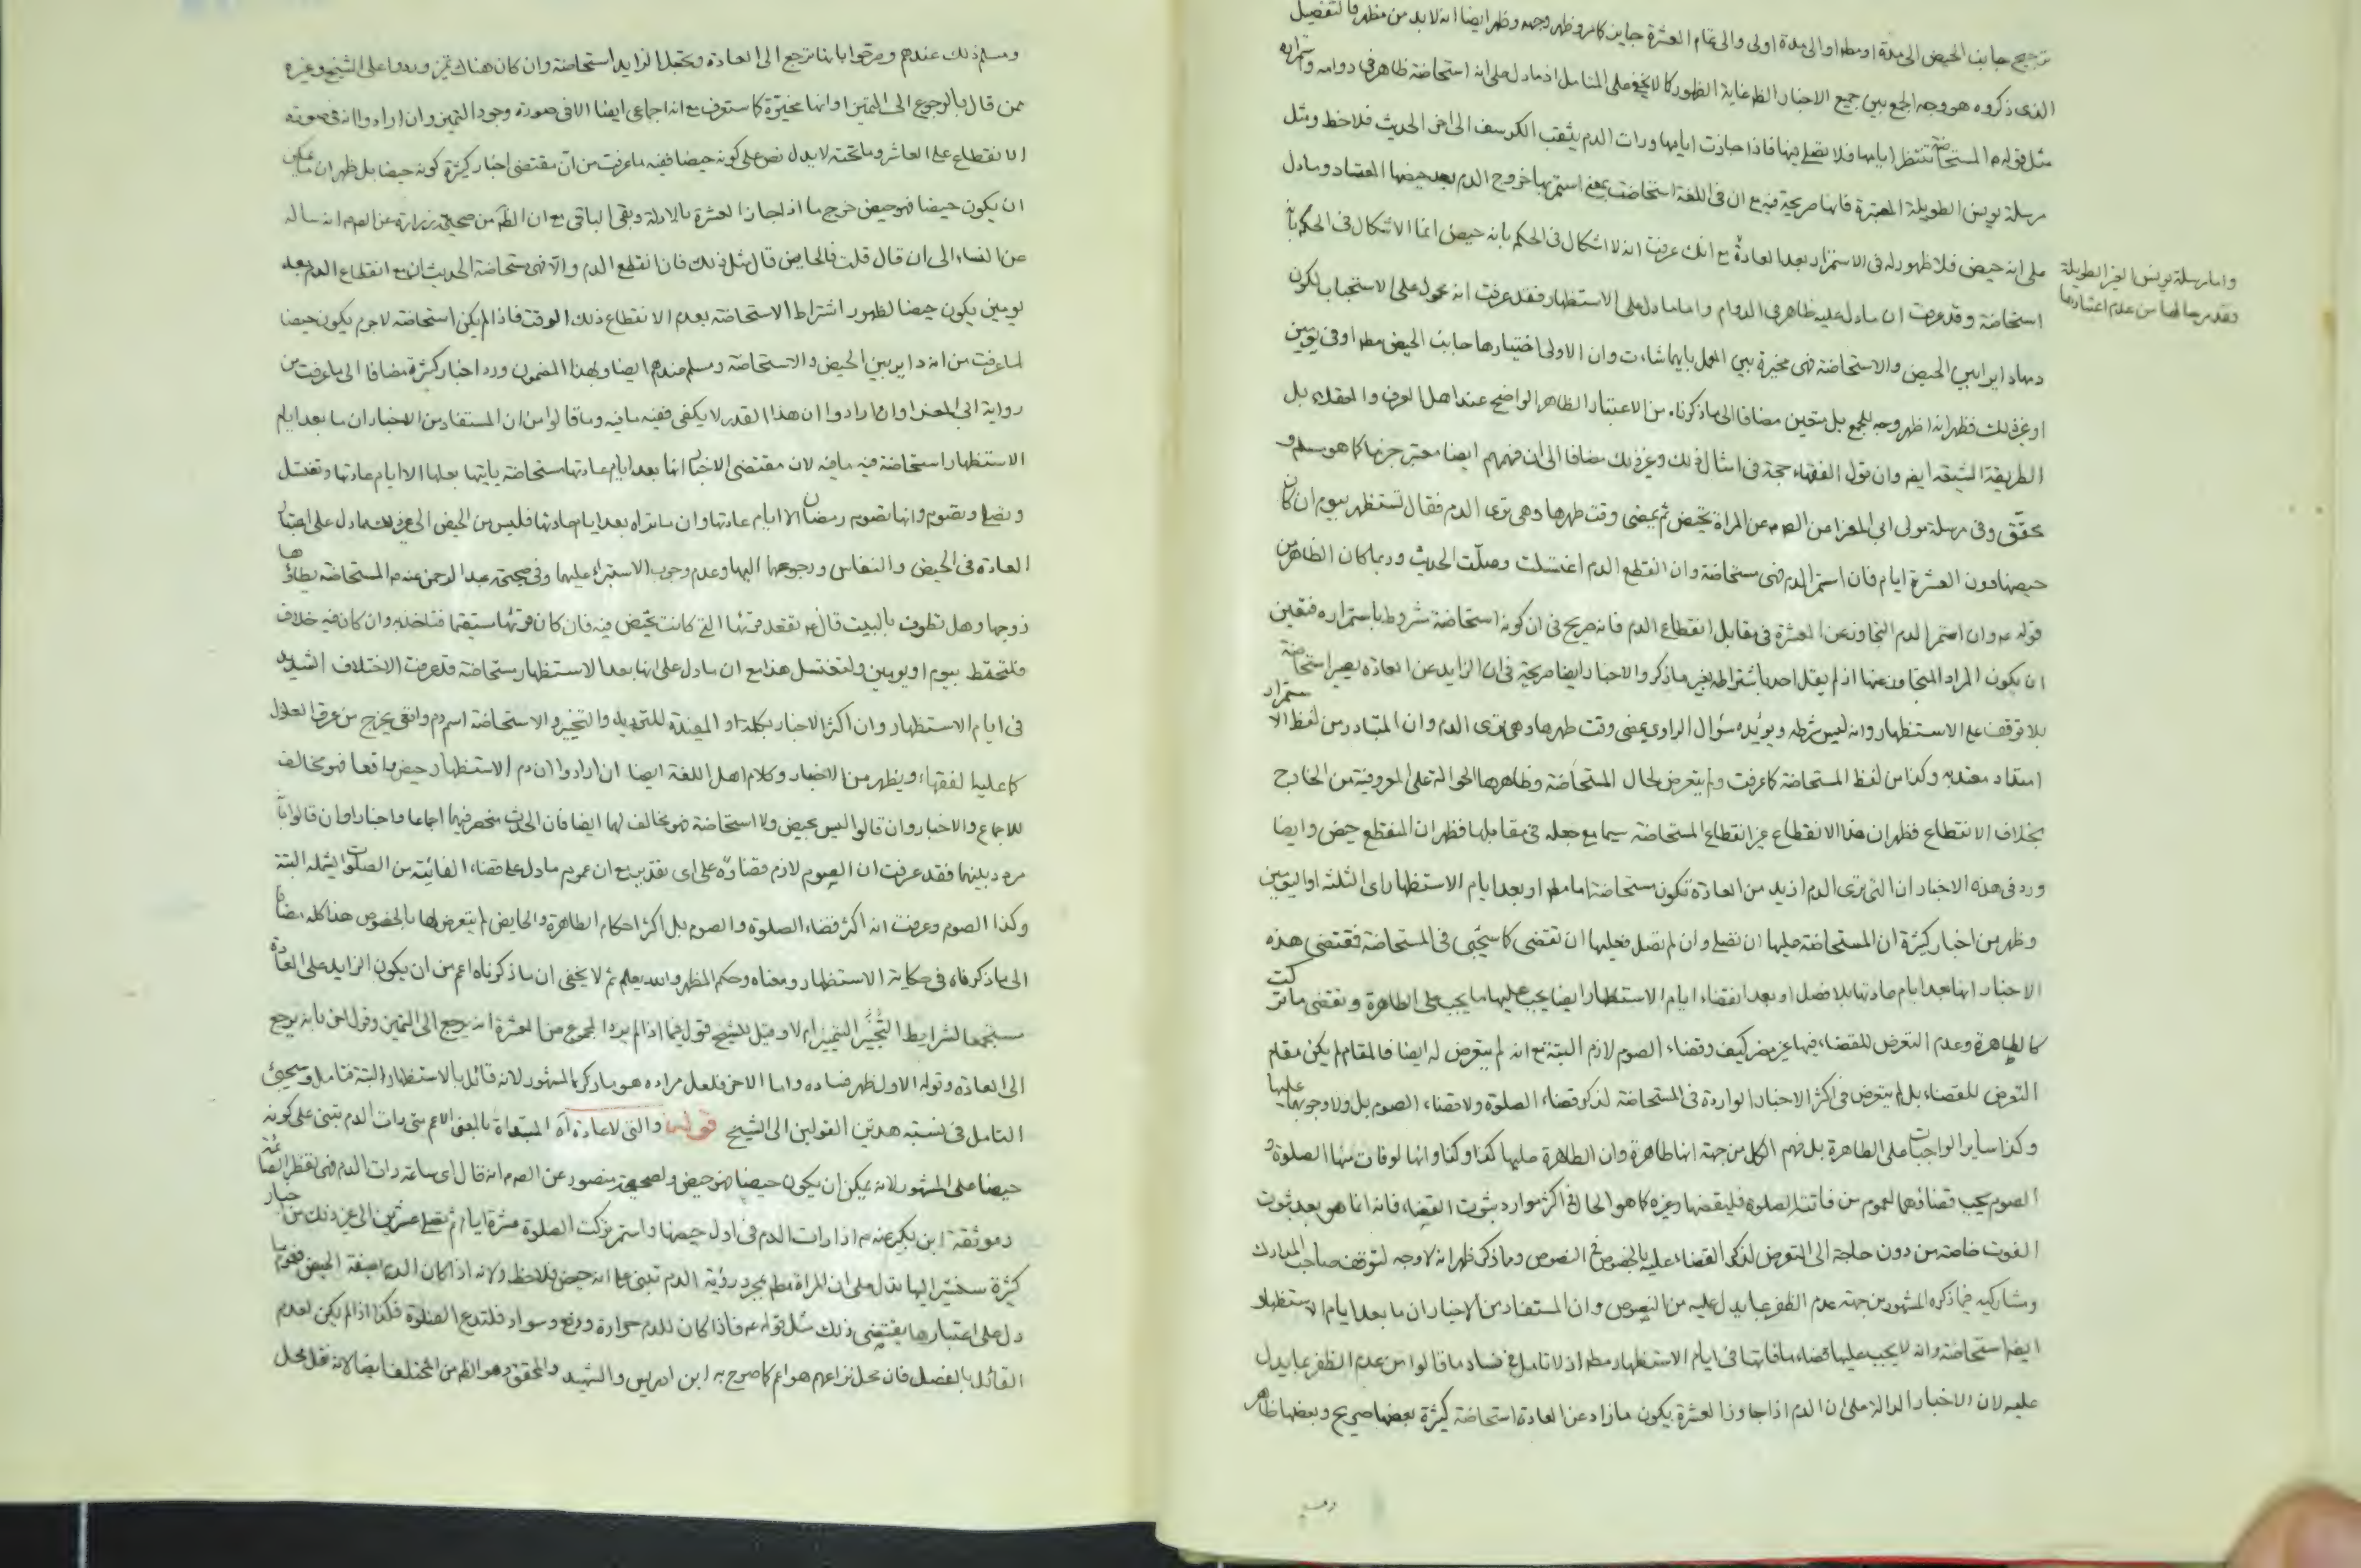 ترجيح جانب الحيض الى مدة او مط او الى مدة اولى والى تمام العشرة جايز كامر وظهر وجهه وظهر ايضا انه لابد من مظهر فالتفصيل
الذى ذكروه هو وجه الجمع بين جميع الاخبار الظ غاية الظهور كا لا يخفى على المتامل اذ مادل على انه استحاضة ظاهر فى دوامه واستمراره
مثل قوله م المستحاضة تنتظر ايامها فلا تصلى فيها فاذا جازت ايامها ورات الدم يثقب الكرسف الى اخر الحديث فلاحظ ومثل
مرسلة يونس الطويلة المعتبرة فانها صريحة فيه مع ان فى اللغة استحاضت بمعنى استمر بها خروج الدم بعد حيضها المعتاد ومادل
على انه حيض فلا ظهور له فى الاستمرار بعد العادة مع انك عرفت انه لا اشكال فى الحكم بانه حيض انما الاشكال فى الحكم بانه
واما مرسلة يونس الطويلة
فقد مر حالها من عدم اعتبارها
استحاضة وقد عرفت ان مادل عليه ظاهر فى الدوام واما مادل على الاستظهار فقد عرفت انه محمول على الاستحباب لكون
دمها دايرا بين الحيض والاستحاضة فهى مخيرة بين العمل بايهما شاءت وان الاولى اختيارها جانب الحيض مط او فى يومين
او غير ذلك فظهر انه اظهر وجه للجمع بل متعين مضافا الى ما ذكرناه من الاعتبار الظاهر الواضح عند اهل العرف والعقلاء بل
الطريقة الشيعة ايضا وان قول الفقهاء حجة فى امثال ذلك وغير ذلك مضافا الى ان فهمهم ايضا معتبر جزما كا هو مسلم و
محقق وفى مرسلة مولى ابى المعزا عن الصم عن المراة تحيض ثم يمضى وقت طهرها وهى ترى الدم فقال تستظهر بيوم ان كان
حيضها دون العشرة ايام فان استمر الدم فهى مستحاضة وان انقطع الدم اغتسلت وصلت الحديث وربما كان الظاهر من
قوله م وان استمر الدم التجاوز عن العشرة فى مقابل انقطاع الدم فانه صريح فى ان كونه استحاضة مشروط باستمراره فتعين
ان يكون المراد المتجاوز عنها اذ لم يقل احد باشتراطه بغير ما ذكر والاخبار ايضا صريحة فى ان الزايد عن العادة يصير استحاضة
بلا توقف على الاستظهار وانه ليس شرطه ويؤيده سؤال الراوى يمضى وقت طهرها وهى ترى الدم وان المتبادر من لفظ الاستمرار
امتداد معتد به وكذا من لفظ المستحاضة كا عرفت ولم يتعرض لحال المستحاضة وظاهرها الحوالة على المعروفية من الخارج
بخلاف الانقطاع فظهر ان هذا الانقطاع غير انقطاع المستحاضة سيما مع جعله فى مقابلها فظهر ان المنقطع حيض وايضا
ورد فى هذه الاخبار ان التى ترى الدم ازيد من العادة تكون مستحاضة اما مط او بعد ايام الاستظهار اى الثلثة او اليومين
وظهر من اخبار كثيرة ان المستحاضة عليها ان تصلى وان لم تصل فعليها ان تقضى كا سيجئ فى المستحاضة فمقتضى هذه
الاخبار انها بعد ايام عادتها بلا فصل او بعد انقضاء ايام الاستظهار ايضا يجب عليها ما يجب على الطاهرة وتقضى ما تركت
كالطاهرة وعدم التعرض للقضاء فيها غير مضر كيف وقضاء الصوم لازم البتة مع انه لم يتعرض له ايضا فالمقام لم يكن مقام
التعرض للقضاء بل لم يتعرض فى اكثر الاخبار الواردة فى المستحاضة لذكر قضاء الصلوة ولا قضاء الصوم بل ولا وجوبهما عليها
وكذا ساير الواجبات على الطاهرة بل فهم الكل من جهة انها طاهرة وان الطاهرة عليها كذا وكذا وانها لو فات منها الصلوة و
الصوم يجب قضاؤهما لعموم من فاتته الصلوة فليقضها وغيره كا هو الحال فى اكثر موارد ثبوت القضاء فانه انما هو بعد ثبوت
الفوت خاصة من دون حاجة الى التعرض لذكر القضاء عليه بالخصوص فى النصوص وما ذكر ظهر انه لا وجه لتوقف صاحب المدارك
ومشاركيه فيما ذكره المشهور من جهة عدم الظفر بما يدل عليه من النصوص وان المستفاد من الاخبار ان ما بعد ايام الاستظهار
ايضا استحاضة وانه لا يجب عليها قضاء ما فاتها فى ايام الاستظهار مط اذ لا تامل فى فساد ما قالوا من عدم الظفر بما يدل
عليه لان الاخبار الدالة على ان الدم اذا جاوز العشرة يكون ما زاد عن العادة استحاضة كثيرة بعضها صريح وبعضها ظاهر
ومسلم ذلك عندهم وصرحوا بانها ترجع الى العادة وتجعل الزايد استحاضة وان كان هناك تميز وردوا على الشيخ وغيره
ممن قال بالرجوع الى التميز او انها مخيرة كا ستعرف مع انه اجماعى ايضا الا فى صورة وجود التميز وان ارادوا انه فى صورة
الانقطاع على العاشر وما تحته لا يدل نص على كونه حيضا ففيه ما عرفت من ان مقتضى اخبار كثيرة كونه حيضا بل ظهر ان ما يمكن
ان يكون حيضا فهو حيض خرج ما اذا جاز العشرة بالادلة وبقى الباقى مع ان الظ من صحيحة زرارة عن الصم انه ساله
عن النفساء الى ان قال قلت فالحايض قال مثل ذلك فان انقطع الدم والا فهى مستحاضة الحديث ان مع انقطاع الدم بعد
يومين يكون حيضا لظهور اشتراط الاستحاضة بعدم الانقطاع ذلك الوقت فاذا لم يكن استحاضة لاجرم يكون حيضا
لما عرفت من انه داير بين الحيض والاستحاضة ومسلم عندهم ايضا وبهذا المضمون ورد اخبار كثيرة مضافا الى ما عرفت من
رواية ابى المعزا وان ارادوا ان هذا القدر لا يكفى ففيه ما فيه وما قالوا من ان المستفاد من الاخبار ان ما بعد ايام
الاستظهار استحاضة فيه ما فيه لان مقتضى الاخبار انها بعد ايام عادتها مستحاضة ياتيها بعلها الا ايام عادتها وتغتسل
وتصلى وتصوم وانها تصوم رمضان الا ايام عادتها وان ما تراه بعد ايام عادتها فليس من الحيض الى غير ذلك مما دل على اعتبار
العادة فى الحيض والنفاس ورجوعهما اليها وعدم وجوب الاستبراء عليهما وفى صحيحة عبد الرحمن عنه م المستحاضة يطاؤها
زوجها وهل تطوف بالبيت قال م تقعد قرئها التى كانت تحيض فيه فان كان قرئها مستقيما فلتاخذ به وان كان فيه خلاف
فلتحتط بيوم او يومين ولتغتسل هذا مع ان مادل على انها بعد الاستظهار مستحاضة قد عرفت الاختلاف الشديد
فى ايام الاستظهار وان اكثر الاخبار بكلمة او المفيدة للترديد والتخيير والاستحاضة اسم دم واقعى يخرج من عرق العاذل
كا عليه الفقهاء ويظهر من الاخبار وكلام اهل اللغة ايضا ان ارادوا ان دم الاستظهار حيض واقعا فهو مخالف
للاجماع والاخبار وان قالوا ليس بحيض ولا استحاضة فهو مخالف لهما ايضا فان الحدث منحصر فيهما اجماعا واخبارا وان قالوا بانه
مردد بينهما فقد عرفت ان الصوم لازم قضاؤه على اى تقدير مع ان عموم مادل على قضاء الفائتة من الصلوات يشمله البتة
وكذا الصوم وعرفت انه اكثر قضاء الصلوة والصوم بل اكثر احكام الطاهرة والحايض لم يتعرض لها بالخصوص هذا كله مضافا
الى ما ذكرناه فى حكاية الاستظهار ومعناه وحكم المظهر والله يعلم ثم لا يخفى ان ما ذكرناه اعم من ان يكون الزايد على العادة
مستجمعا لشرايط التميز ام لا وقيل للشيخ قول فيما اذا لم يزد المجموع عن العشرة انه يرجع الى التميز وقول اخر بانه يرجع
الى العادة وقوله الاول ظهر فساده واما الاخر فلعل مراده هو ما ذكره المشهور لانه قائل بالاستظهار البتة فتامل وسيجئ
التامل فى نسبة هذين القولين الى الشيخ قوله والتى لا عادة اه المبتداة بالمعنى الاعم متى رات الدم تبنى على كونه
حيضا على المشهور لانه يمكن ان يكون حيضا فهو حيض ولصحيحة منصور عن الصم انه قال اى ساعة رات الدم فهى تفطر الصائمة
وموثقة ابن بكير عنه م اذا رات الدم فى اول حيضها واستمر تركت الصلوة عشرة ايام ثم تصلى عشرين الى غير ذلك من اخبار
كثيرة سنشير اليها تدل على ان المراة مط بمجرد رؤية الدم تبنى على انه حيض فلاحظ ولانه اذا كان الدم بصفة الحيض فعموم ما
دل على اعتبارها يقتضى ذلك مثل قوله م فاذا كان للدم حرارة ودفع وسواد فلتدع الصلوة فكذا اذا لم يكن لعدم
القائل بالفصل فان محل نزاعهم هو اعم كا صرح به ابن ادريس والشهيد والمحقق وهو الظ من المختلف ايضا لانه نقل محل